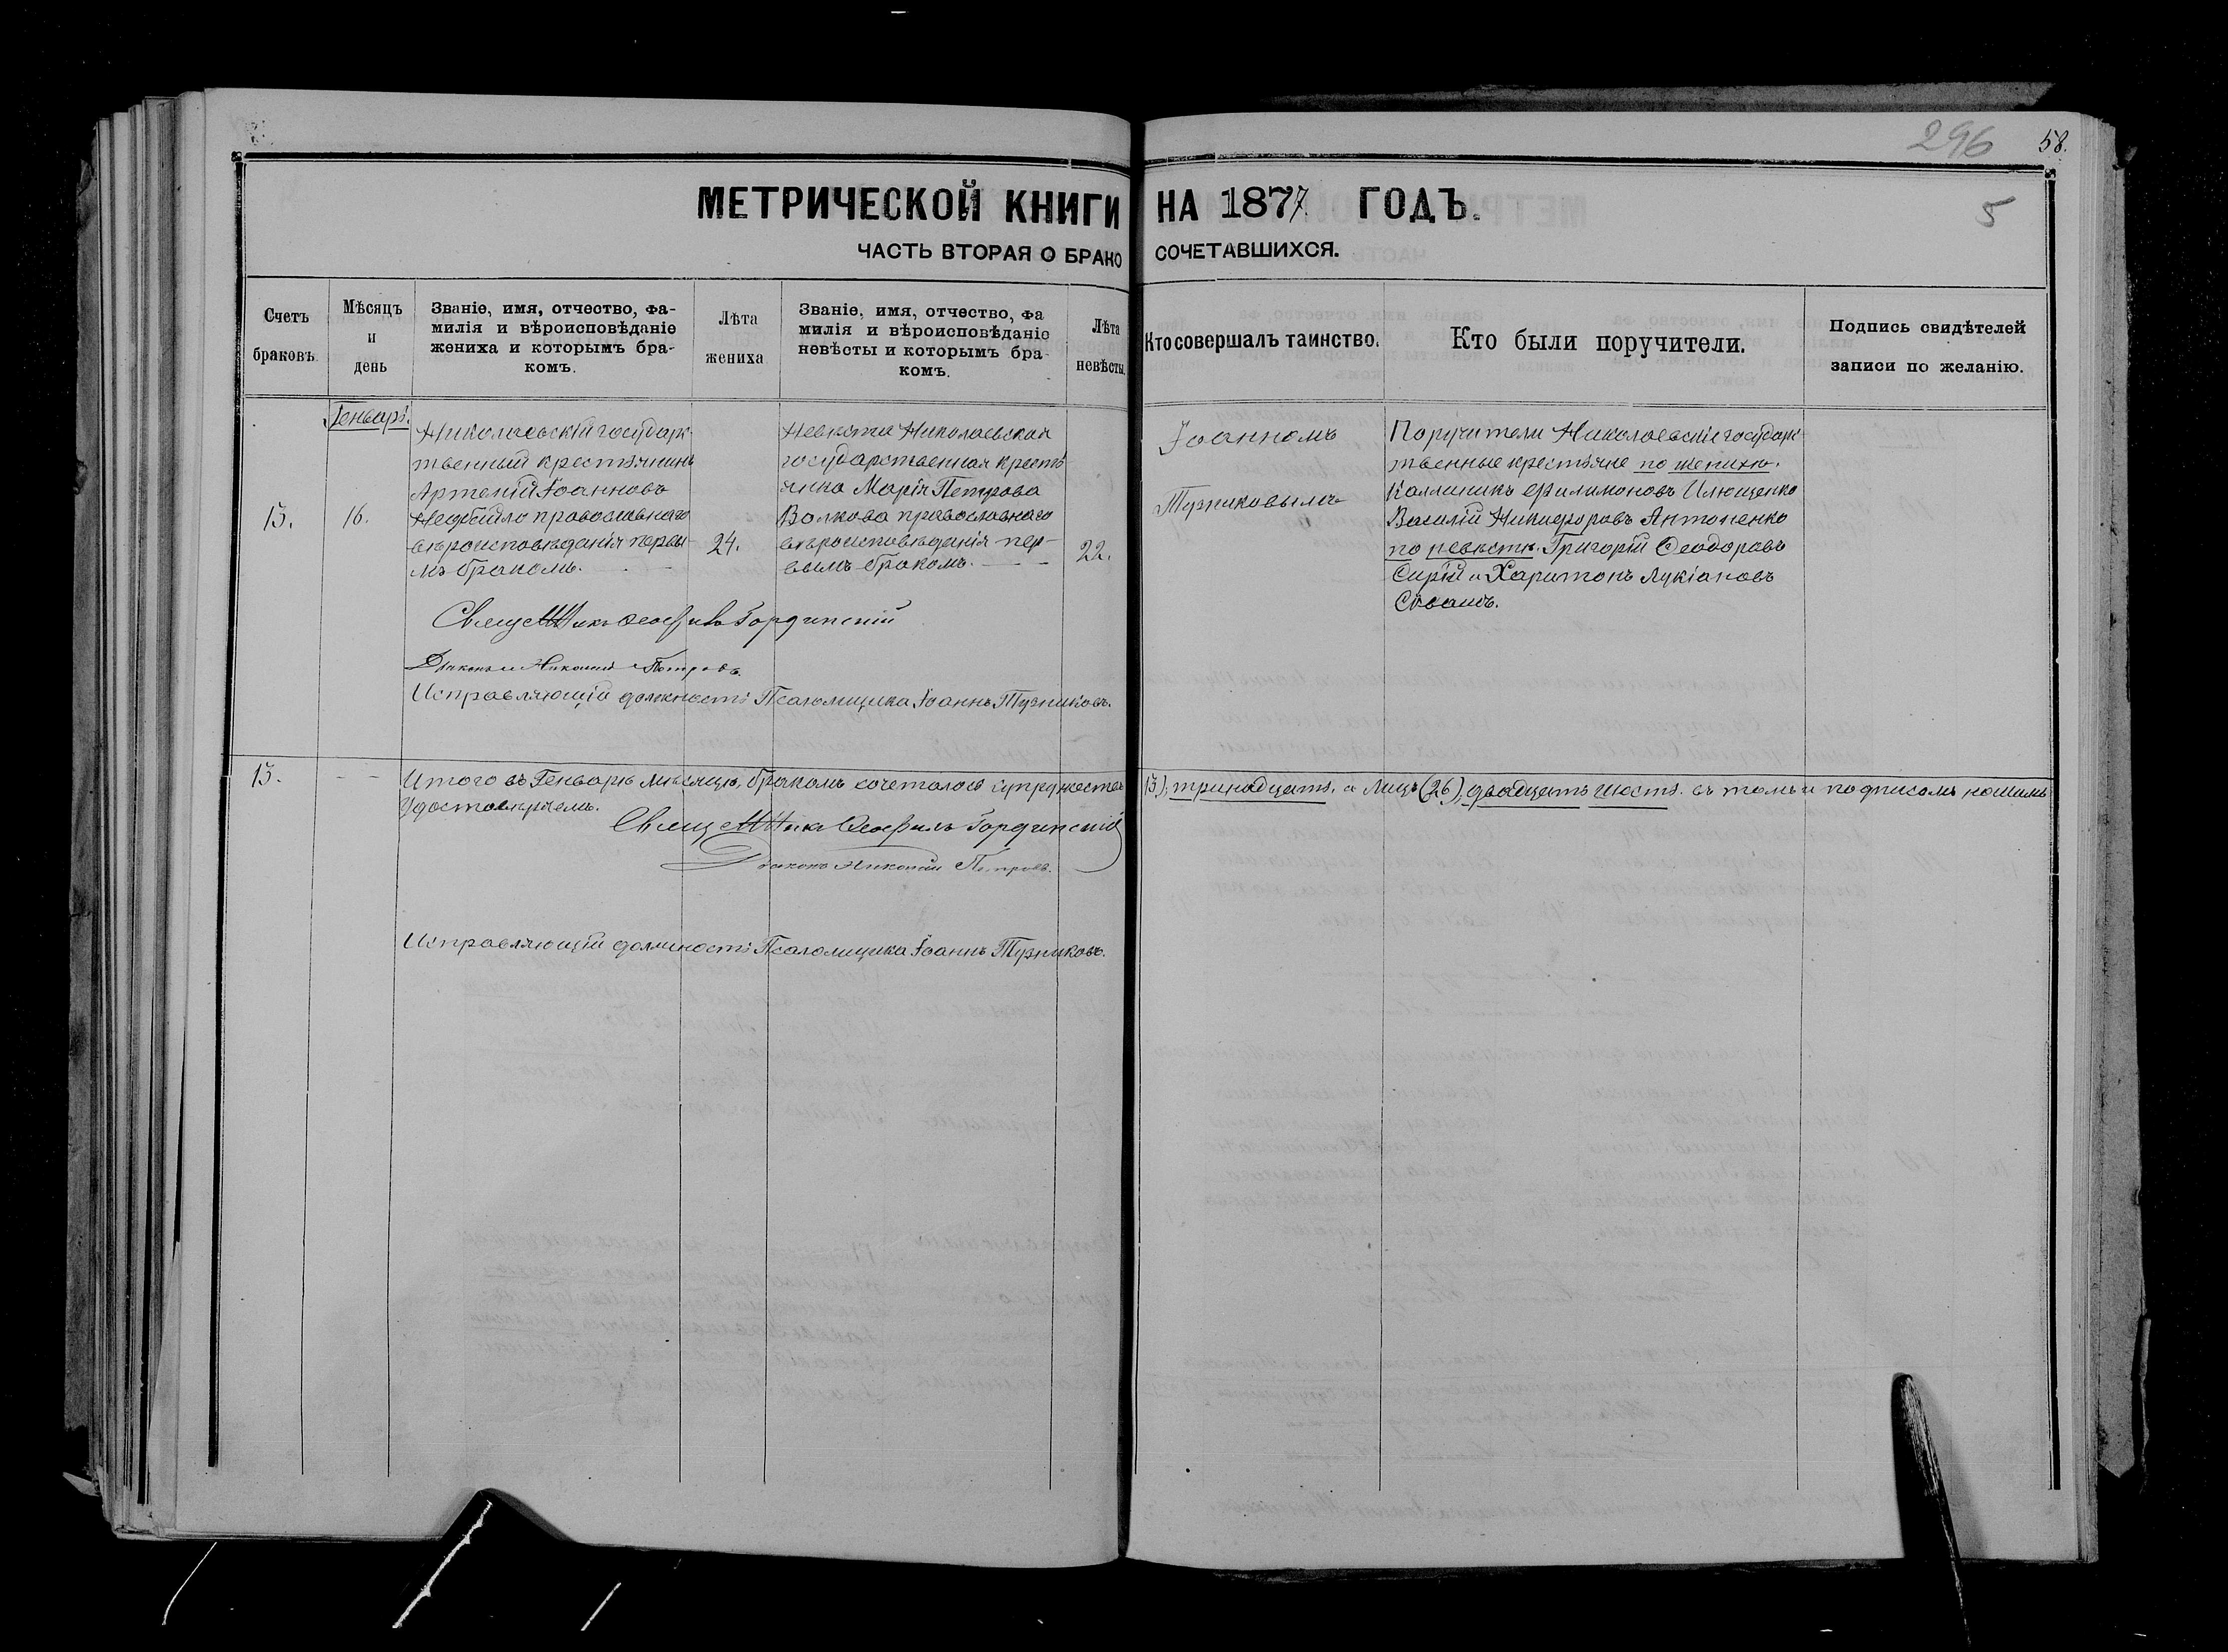 296 58.
МЕТРИЧЕСКОЙ КНИГИ НА 1877 ГОДЪ.
5
ЧАСТЬ ВТОРАЯ О БРАКОСОЧЕТАВШИХСЯ.
Счетъ
браковъ.
Мѣсяцъ
и
день
Званіе, имя, отчество, фа-
милія и вѣроисповѣданіе
жениха и которымъ бра-
комъ.
Лѣта
жениха
Званіе, имя, отчество, фа
милія и вѣроисповѣданіе
невѣсты и которымъ бра
комъ.
Лѣта
невѣсты.
Кто совершалъ таинство.
Кто были поручители.
Подпись свидѣтелей
записи по желанію.
Генварь.
13.
16.
Николаевскій государс
твенный крестьянинъ
Артемій Іоанновъ
православнаго
вѣроисповѣданія первы
мъ бракомъ.
24.
Невѣста Николаевская
государственная кресть
янка Марія Петрова
Волкова православнаго
вѣроисповѣданія пер-
вымъ бракомъ.
22.
Іоанномъ
Тузиковымъ
Поручители Николаевскіе государс
твенные крестьяне по женихѣ.
Каллиникъ Филимоновъ Илющенко
Василій Никифоровъ Антоненко
по невѣстѣ. Григорій Ѳеодоровъ
Сирый и Харитонъ Лукіановъ
Священникъ Ѳеофилъ Гординскій
Діаконъ Никоній Петровъ.
Исправляющій должность Псаломщика Іоаннъ Тузиковъ.
13.
Итого въ Генварѣ мѣсяцѣ, бракомъ сочеталось супружествъ 13), тринадцать. а лицъ (26), двадцать шесть. въ томъ и подписомъ нашимъ
Удостовѣряемъ.
Священника Ѳеофилъ Гординскій
Діаконъ Никоній Петровъ.
Исправляющій должность Псаломщика Іоаннъ Тузиковъ.